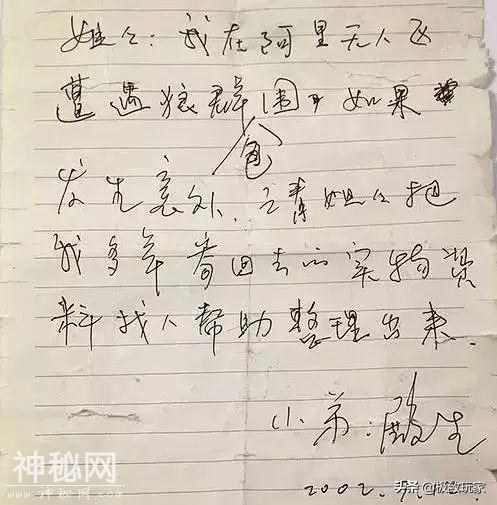 姐々：我在阿里无人区
遭遇狼群包围，如果
发生意外，请姐々把
我多年寄回去的实物资
料找人帮助整理出来.
小弟：生
2002.
神秘网
头条 @极致玩家